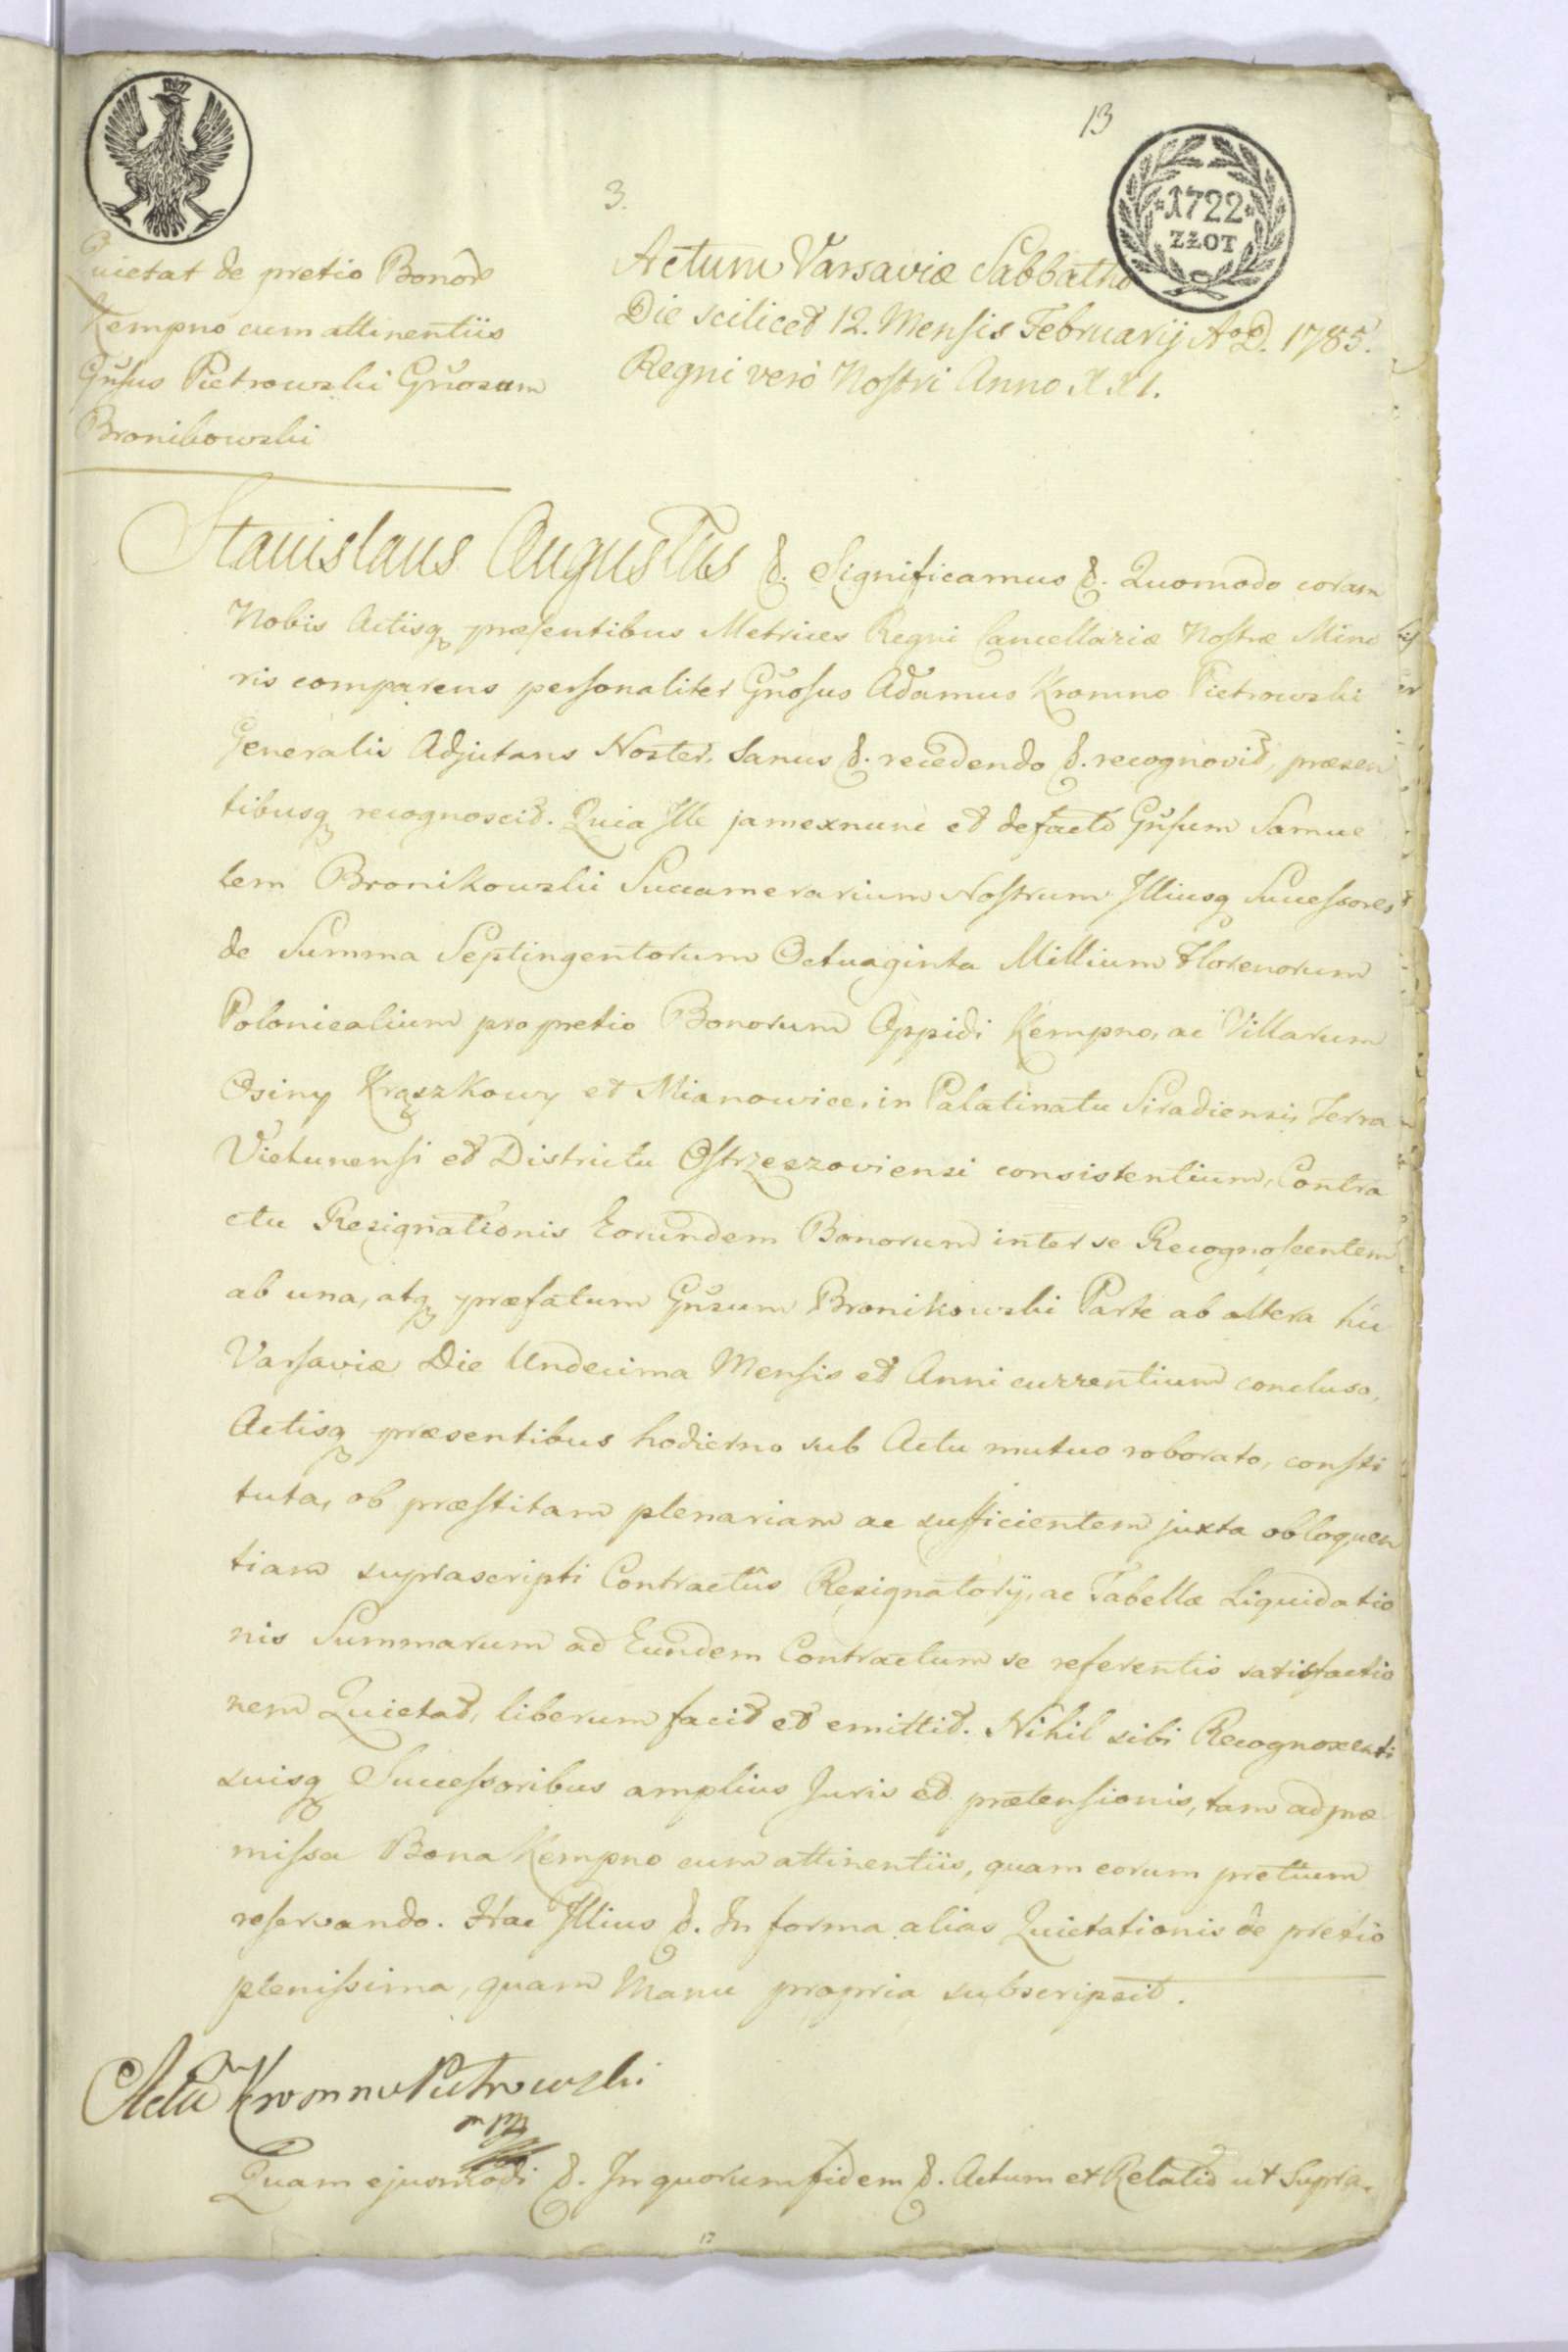 13
1722
ZŁOT
3.
Quietat de pretio Bonor
Kempno cum attinentiis
Gnsus Pietrowski Gnosum
Bronikowski
Actum Varsaviæ Sabbatho
Die scilicet 12. Mensis Februarij AoD. 1785.
Regni verò Nostri Anno XXI.
Stanislaus Augustus &. Significamus &. Quomodo coram
Nobis Actisq præsentibus Metrices Regni Cancellariæ Nostræ Mino
ris comparens personaliter Gnosus Adamus Kromno Pietrowski
Generalis Adjutans Noster, Sanus &. recedendo &. recognovit, præsen
tibusq recognoscit. Quia Ille jamexnunc et defacto Gnsum Samue
lem Bronikowski Succamerarium Nostrum Illiusq Successores
de Summa Septingentorum Octuaginta Millium Florenorum
Polonicalium pro pretio Bonorum Oppidi Kempno, ac Villarum
Osiny Krąszkowy et Mianowice, in Palatinatu Siradiensi, Terra
Vielunensi et Districtu Ostrzeszoviensi consistentium, Contra
ctu Resignationis Eorundem Bonorum inter se Recognoscentem
ab una, atq præfatum Gnsum Bronikowski Parte ab altera hic
Varsaviæ Die Undecima Mensis et Anni currentium concluso,
Actisq præsentibus hodierno sub Actu mutuo roborato, consti
tuta, ob præstitam plenariam ac sufficientem juxta obloquen
tiam suprascripti Contractûs Resignatorij, ac Tabellæ Liquidatio
nis Summarum ad Eundem Contractum se referentis satisfactio
nem Quietat, liberum facit et emittit. Nihil sibi Recognoscenti
suisq Successoribus amplius Juris et prætensionis, tam ad præ
missa Bona Kempno cum attinentiis, quam eorum pretium
reservando. Hac Illius &. In forma alias Quietationis de pretio
plenissima, quam Manu propria subscripsit.
Kromno Pietrowski
mp
Quam ejusmodi &. In quorum fidem &. Actum et Relatio ut Supra.
17